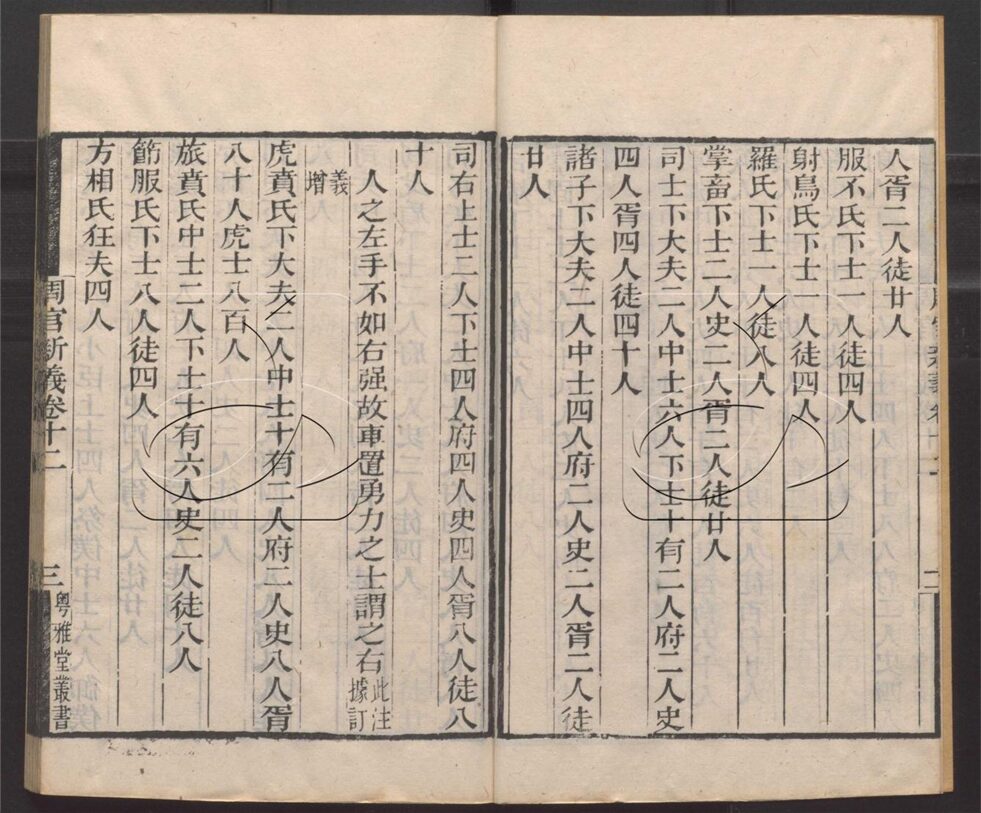 人胥二人徒廿人
服不氏下士一人徒四人
射鳥氏下士一人徒四人
羅氏下士一人徒八人
掌畜下士二人史二人胥二人徒廿人
司士下大夫二人中士六人下士十有二人府二人史
四人胥四人徒四十人
諸子下大夫二人中士四人府二人史二人胥二人徒
廿人
司右上士二人下士四人府四人史四人胥八人徒八
十人
人之左手不如右强故車置勇力之士謂之右此注據訂
義增
虎賁氏下大夫二人中士十有二人府二人史八人胥
八十人虎士八百人
旅賁氏中士二人下士十有六人史二人徒八人
節服氏下士八人徒四人
方相氏狂夫四人
周官新義卷十二
三
粵雅堂叢書